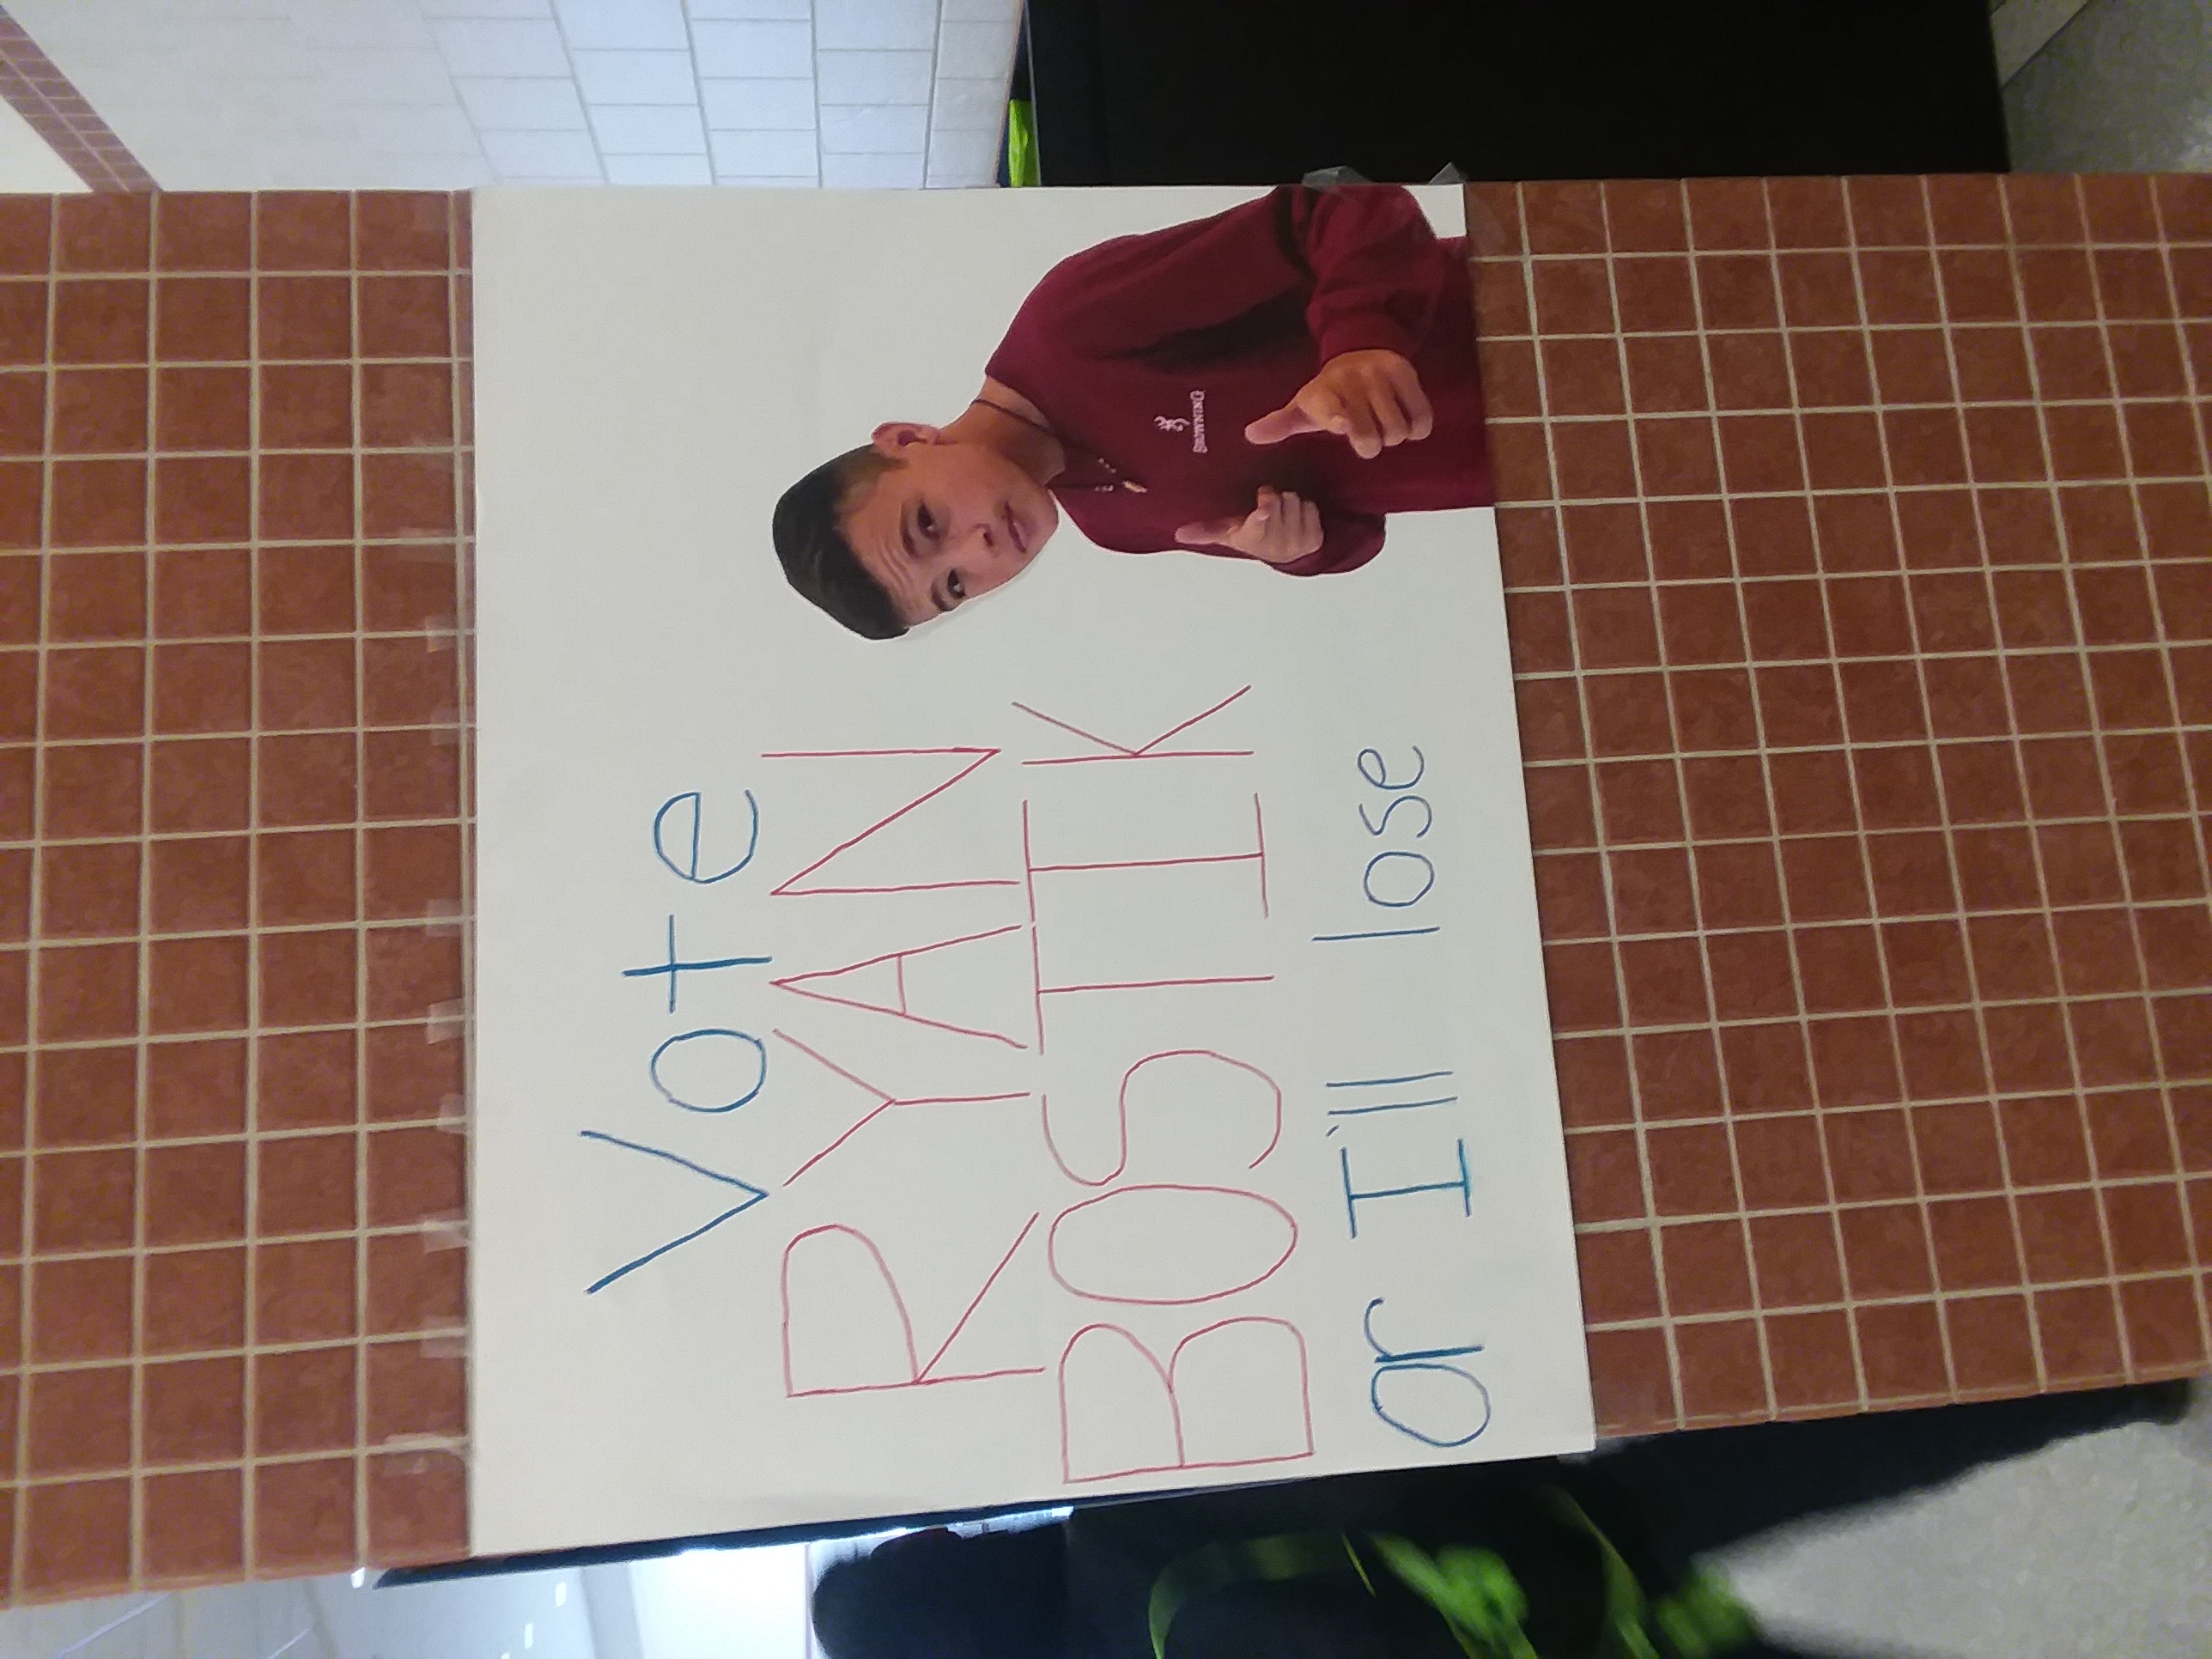 Vote
RYAN
BOSTIK
or I'll lose
BROWNING